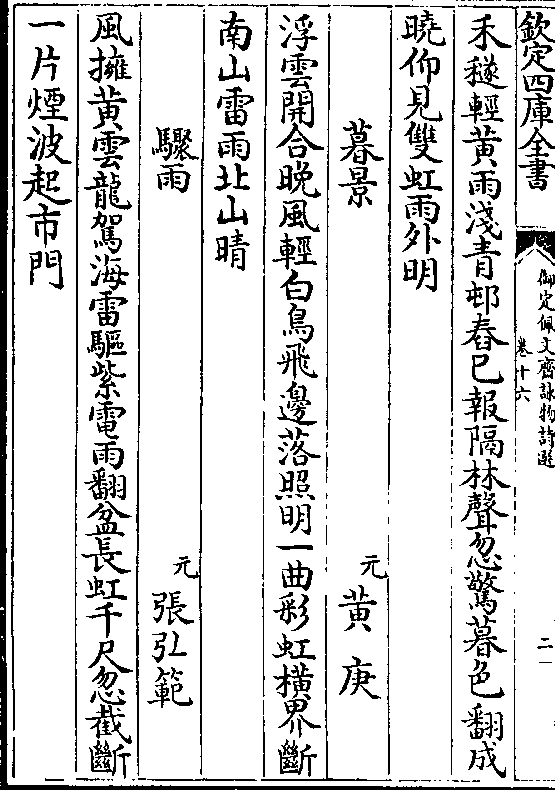 欽定四庫全書
御定佩文齋詠物詩選
卷十六
二
禾穟輕黄雨淺青邨舂已報隔林聲忽驚暮色翻成
曉仰見雙虹雨外明
暮景
元
黄庚
浮雲開合晚風輕白鳥飛邊落照明一曲彩虹横界斷
南山雷雨北山晴
驟雨
元
張弘範
風擁黄雲龍駕海雷驅紫電雨翻盆長虹千尺忽截斷
一片煙波起市門